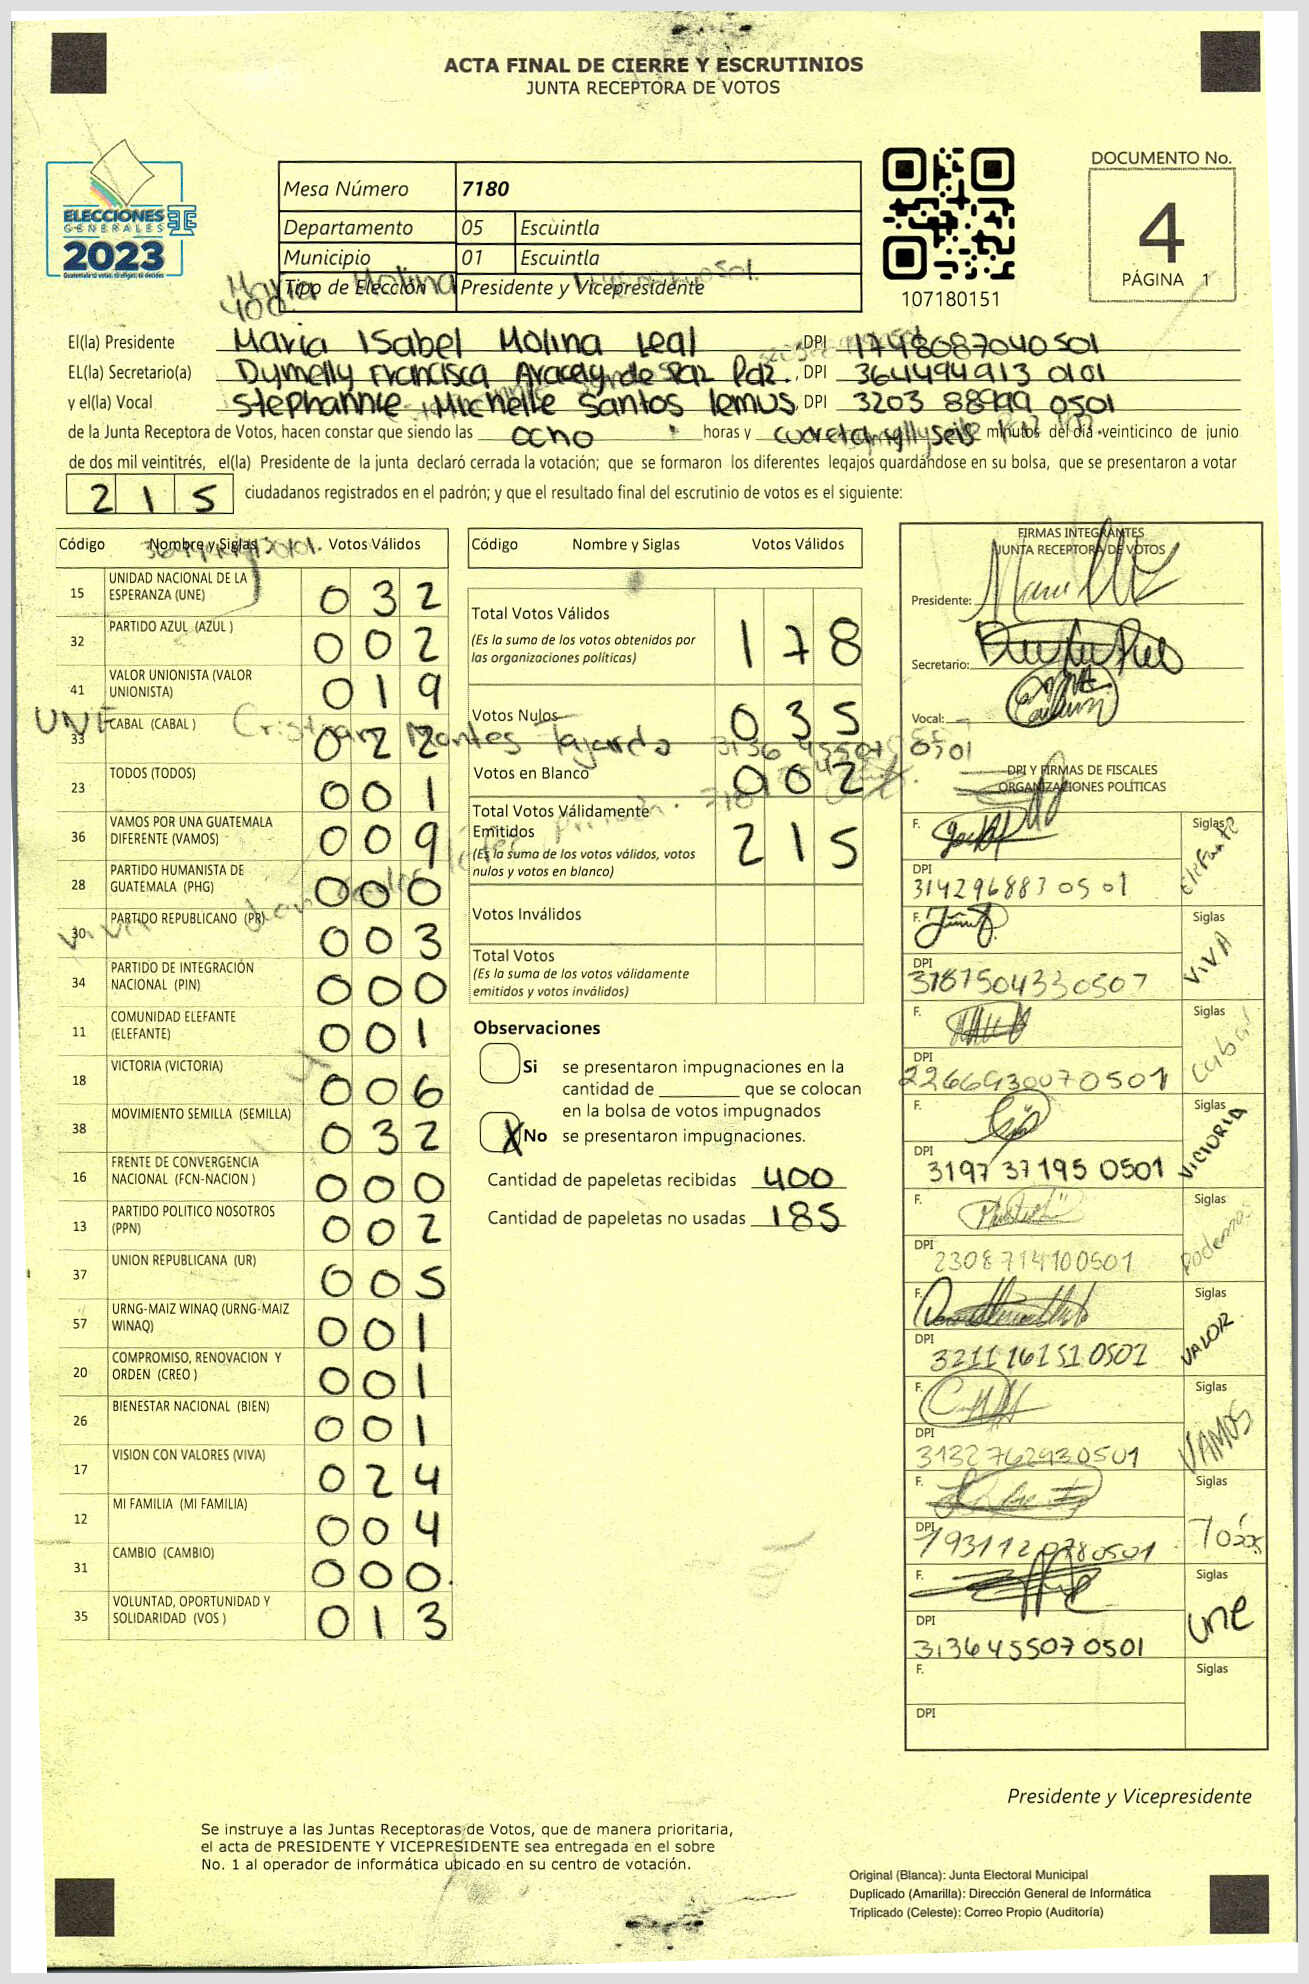 ACTA FINAL DE CIERRE Y ESCRUTINIOS
JUNTA RECEPTORA DE VOTOS
ELECCIONES
GENERALES
2023
Mesa Número 7180
Departamento 05 Escuintla
Municipio 01 Escuintla
Tipo de Elección Presidente y Vicepresidente
107180151
DOCUMENTO No.
4
PÁGINA 1
Maria Molina
400
El(la) Presidente Maria Isabel Molina Leal DPI 1748087040501
EL(la) Secretario(a) Dymelly Francisca Aracely de Paz Paz. , DPI 364494913 0101
y el(la) Vocal Stephannie Michelle Santos lemus, DPI 3203 88999 0501
de la Junta Receptora de Votos, hacen constar que siendo las ocho horas y minutos del día veinticinco de junio
de dos mil veintitrés, el(la) Presidente de la junta declaró cerrada la votación; que se formaron los diferentes legajos guardándose en su bolsa, que se presentaron a votar
215 ciudadanos registrados en el padrón; y que el resultado final del escrutinio de votos es el siguiente:
Código Nombre y Siglas Votos Válidos
15 UNIDAD NACIONAL DE LA ESPERANZA (UNE) 032
32 PARTIDO AZUL (AZUL ) 002
41 VALOR UNIONISTA (VALOR UNIONISTA) 019
33 CABAL (CABAL ) 022
23 TODOS (TODOS) 001
36 VAMOS POR UNA GUATEMALA DIFERENTE (VAMOS) 009
28 PARTIDO HUMANISTA DE GUATEMALA (PHG) 000
30 PARTIDO REPUBLICANO (PR) 003
34 PARTIDO DE INTEGRACIÓN NACIONAL (PIN) 000
11 COMUNIDAD ELEFANTE (ELEFANTE) 001
18 VICTORIA (VICTORIA) 006
38 MOVIMIENTO SEMILLA (SEMILLA) 032
16 FRENTE DE CONVERGENCIA NACIONAL (FCN-NACION ) 000
13 PARTIDO POLITICO NOSOTROS (PPN) 002
37 UNION REPUBLICANA (UR) 005
57 URNG-MAIZ WINAQ (URNG-MAIZ WINAQ) 001
20 COMPROMISO, RENOVACION Y ORDEN (CREO ) 001
26 BIENESTAR NACIONAL (BIEN) 001
17 VISION CON VALORES (VIVA) 024
12 MI FAMILIA (MI FAMILIA) 004
31 CAMBIO (CAMBIO) 000.
35 VOLUNTAD, OPORTUNIDAD Y SOLIDARIDAD (VOS ) 013
UNE Cristian Montes Tajardo
VIVA
Código Nombre y Siglas Votos Válidos
Total Votos Válidos 178
(Es la suma de los votos obtenidos por
las organizaciones políticas)
Votos Nulos 035
Votos en Blanco 002
Total Votos Válidamente
Emitidos 215
(Es la suma de los votos válidos, votos
nulos y votos en blanco)
Votos Inválidos
Total Votos
(Es la suma de los votos válidamente
emitidos y votos inválidos)
Observaciones
Si se presentaron impugnaciones en la
cantidad de ________ que se colocan
en la bolsa de votos impugnados
X No se presentaron impugnaciones.
Cantidad de papeletas recibidas 400
Cantidad de papeletas no usadas 185
FIRMAS INTEGRANTES
JUNTA RECEPTORA DE VOTOS
Presidente:
Secretario:
Vocal:
0501
DPI Y FIRMAS DE FISCALES
ORGANIZACIONES POLÍTICAS
F. Siglas Elefante
DPI 314296883 0501
F. Siglas VIVA
DPI 3787504330507
F. Siglas Cabal
DPI 2266930070501
F. Siglas VICTORIA
DPI 3197 37195 0501
F. Siglas Podemos
DPI 2308714100501
F. Siglas VALOR
DPI 3211161510501
F. Siglas VAMOS
DPI 3132762930501
F. Siglas
DPI 1931120780501
F. Siglas une
DPI 3136455070501
F. Siglas
DPI
Presidente y Vicepresidente
Se instruye a las Juntas Receptoras de Votos, que de manera prioritaria,
el acta de PRESIDENTE Y VICEPRESIDENTE sea entregada en el sobre
No. 1 al operador de informática ubicado en su centro de votación.
Original (Blanca): Junta Electoral Municipal
Duplicado (Amarilla): Dirección General de Informática
Triplicado (Celeste): Correo Propio (Auditoría)